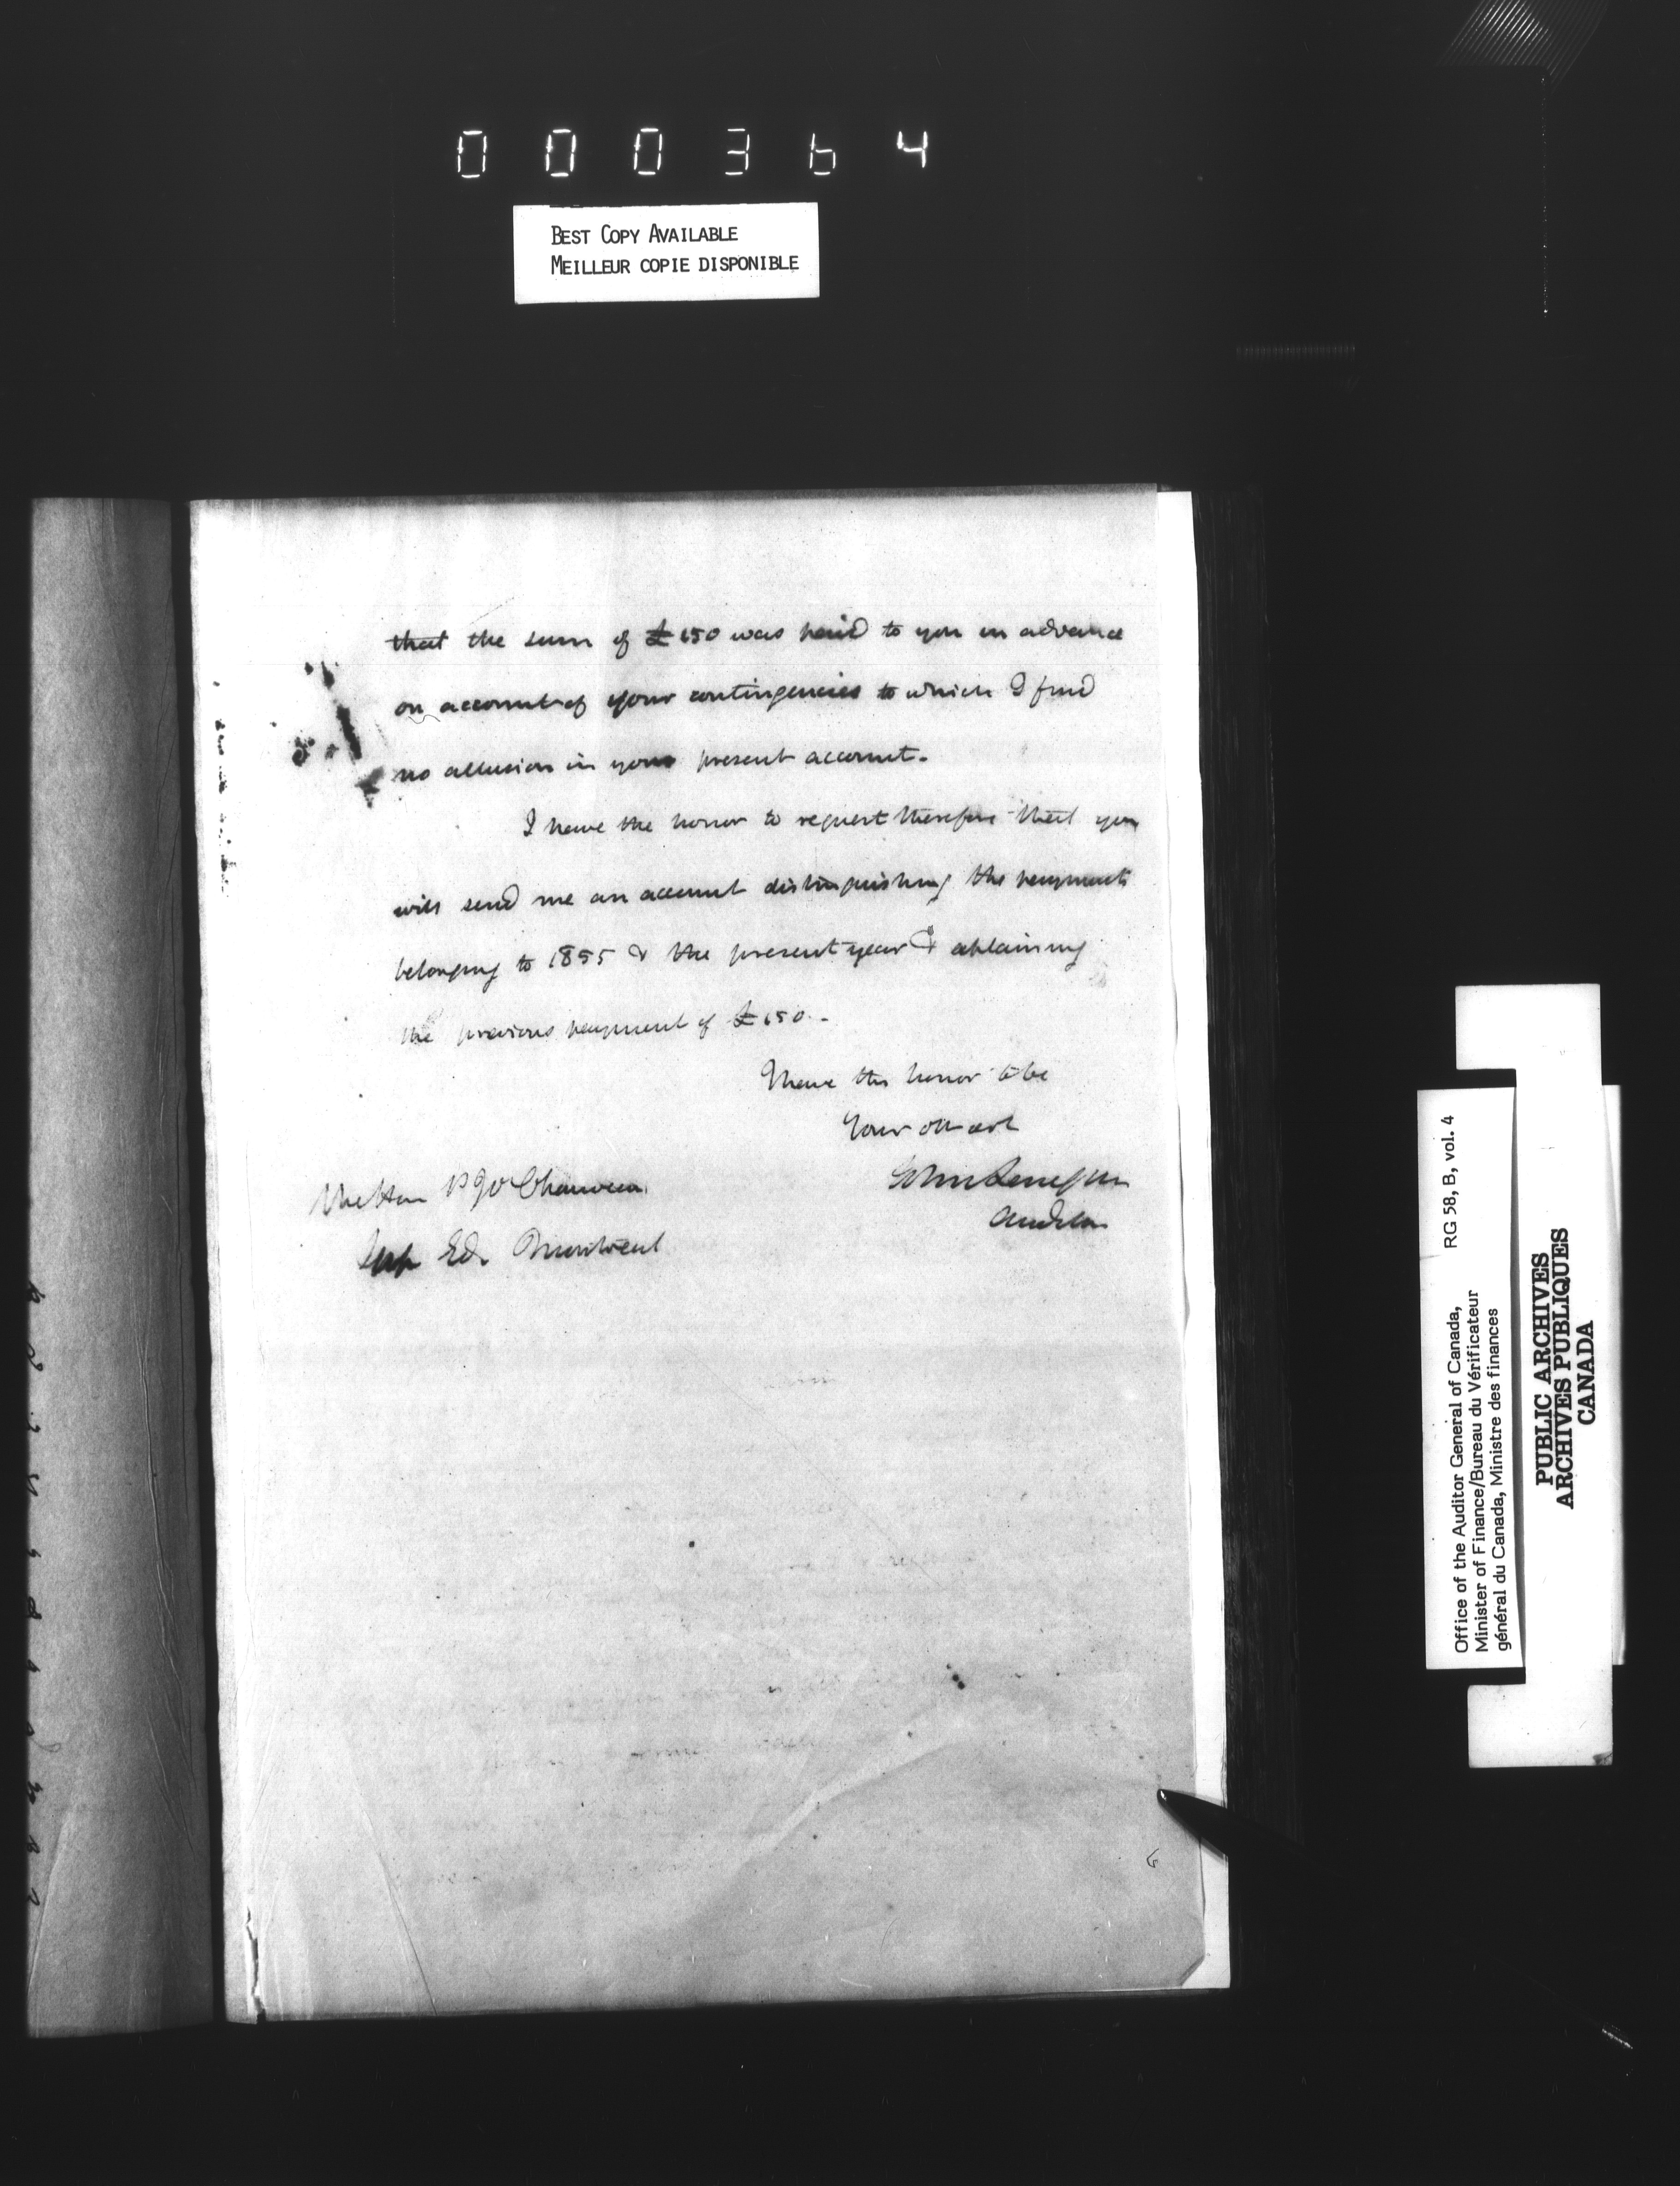 000364
BEST COPY AVAILABLE
MEILLEUR COPIE DISPONIBLE
that the sum of £150 was paid to you in advance
on account of your contingencies to which I find
no allusion in your present account.
I have the honor to request therefore that you
will send me an account distinguishing the payments
belonging to 1855 & the present year & explaining
the previous payment of £150.-
I have the honor to be
Your obt servt
John Langton
Auditor
The Hon PJO Chauveau
Sup Ed. Montreal
RG 58, B, vol. 4
Office of the Auditor General of Canada,
Minister of Finance/Bureau du Vérificateur
général du Canada, Ministre des finances
PUBLIC ARCHIVES
ARCHIVES PUBLIQUES
CANADA